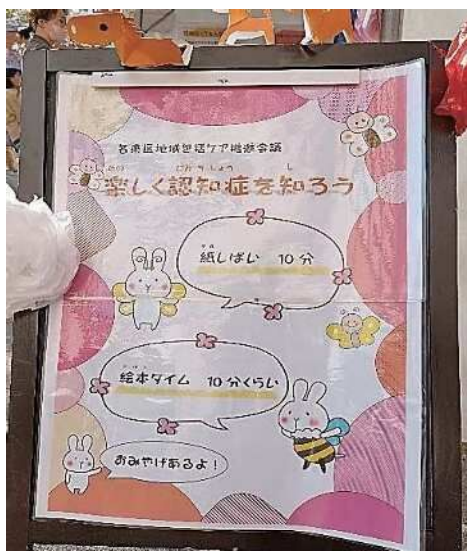 地域包括ケア推進会議
楽しく認知症を知ろう
紙しばい 10分
絵本タイム 10分くらい
おみやげあるよ！